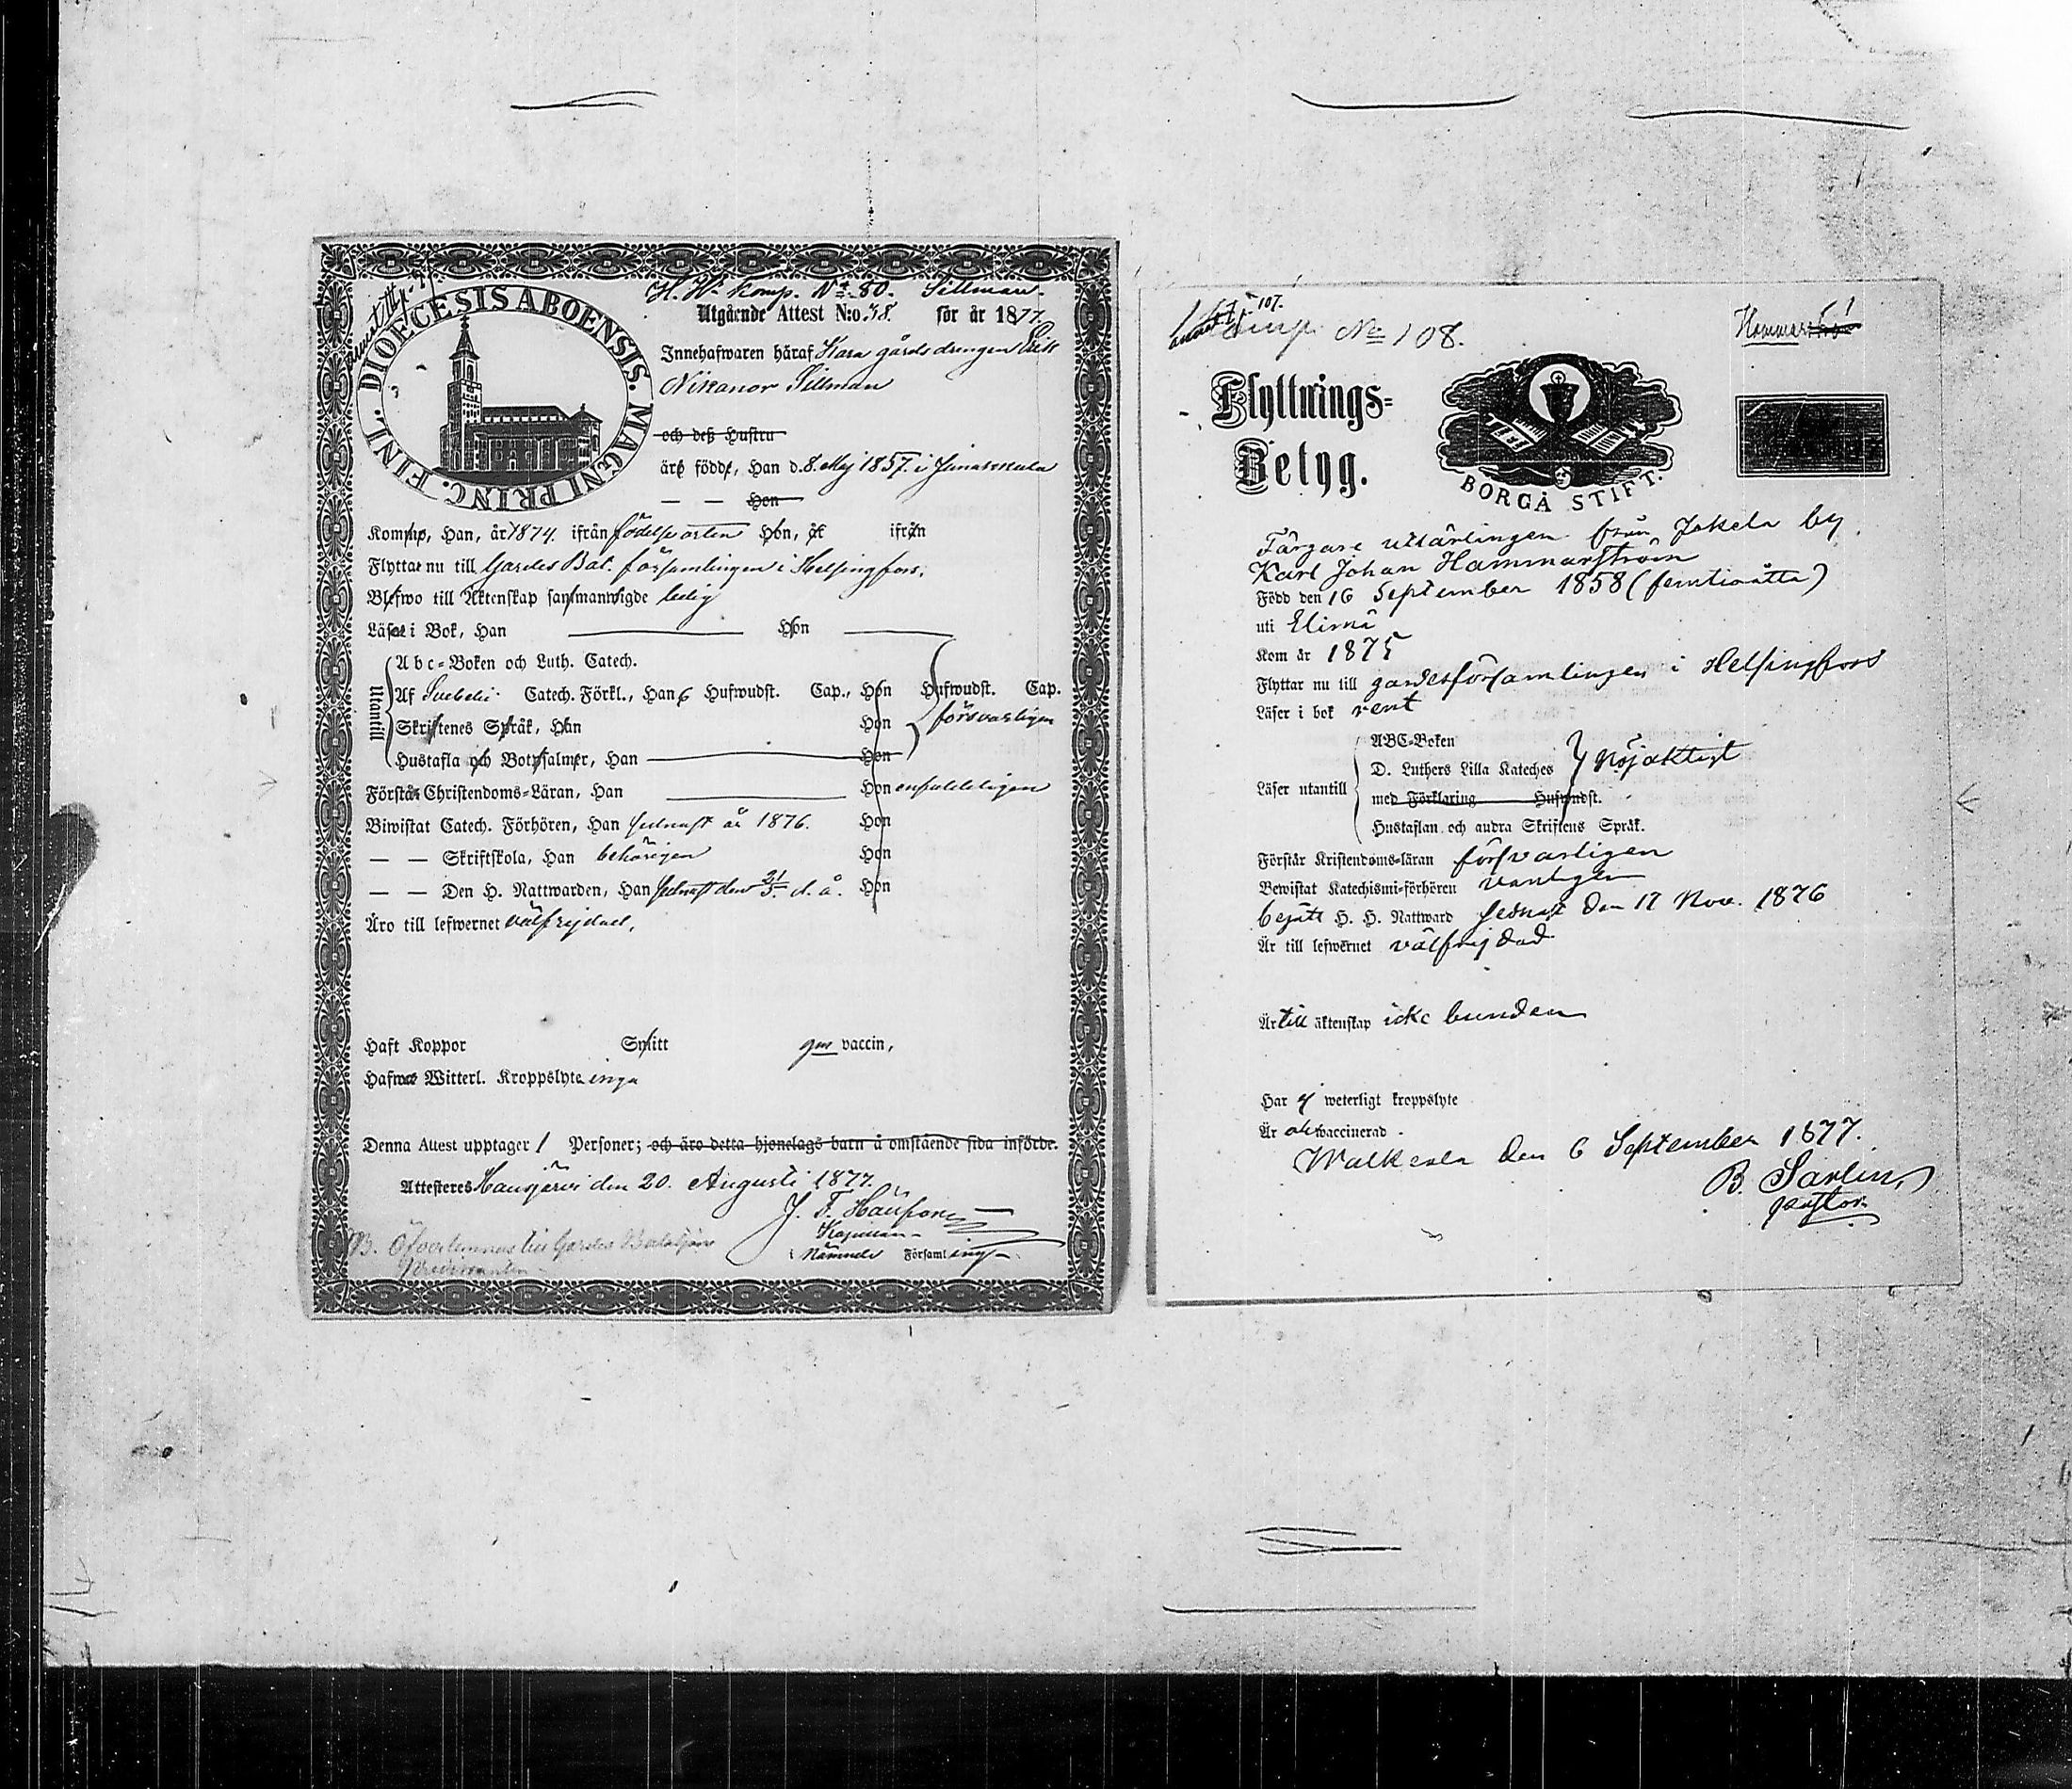 H. W. komp. No 80. Sillman.
Utgående Attest N:o 38. för år 1877.
DIOECESIS ABOENSIS. MAGNI PRINC. FINL.
Innehafwaren häraf Kara gårds drengen Erik
Nikanor Sillman
och deß Hustru
äro födde, Han d. 8. Maj 1857. i Janakkala
— — Hon
Kommo, Han, år 1874. ifrån födelse orten Hon, år ifrån
Flyttar nu till Gardes Bat. församlingen i Helsingfors.
Blefwo till Äktenskap sammanwigde ledig
Läser i Bok, Han Hon
Utantill
Abc-Boken och Luth. Catech.
Af Svebelii Catech. Förkl., Han 6 Hufwudst. Cap., Hon Hufwudst. Cap.
Skriftenes Språk, Han Hon försvarligen
Hustafla och Botpsalmer, Han Hon
Förstår Christendoms-Läran, Han Hon enfaldeligen
Biwistat Catech. Förhören, Han sednast år 1876. Hon
— — Skriftskola, Han behörigen Hon
— — Den H. Nattwarden, Han sednast den 21/5 d. å. Hon
Äro till lefwernet välfrejdad.
Haft Koppor Smitt gm vaccin,
Hafwa Witterl. Kroppslyte inga
Denna Attest upptager 1 Personer; och äro detta hjonelags barn å omstående sida införde.
Attesteres Hausjärvi den 20. Augusti 1877.
Kapellan
i Nämnde Församling
Öfverlemnas till Gardes Bataljons
Komp. No 108. 107.
Flyttnings-
Betyg.
BORGÅ STIFT.
Färgare utlärlingen från Jokela by
Karl Johan Hammarström
Född den 16 September 1858 (femtioåtta)
uti Elimä
Kom år 1875
Flyttar nu till gardesförsamlingen i Helsingfors
Läser i bok rent
Läser utantill
ABC-Boken
D. Luthers Lilla Kateches nöjaktigt
med Förklaring Hufwudst.
Hustaflan och andra Skriftens Språk.
Förstår Kristendoms-läran försvarligen
Bewistat Katechismi-förhören vanligen
begått H. H. Nattward sednast den 17 Nov. 1876
Är till lefwernet välfrejdad
Är till äktenskap icke bunden
Har ej weterligt kroppslyte
Är waccinerad
Walkeala den 6 September 1877.
B. Sarlin,
pastor.